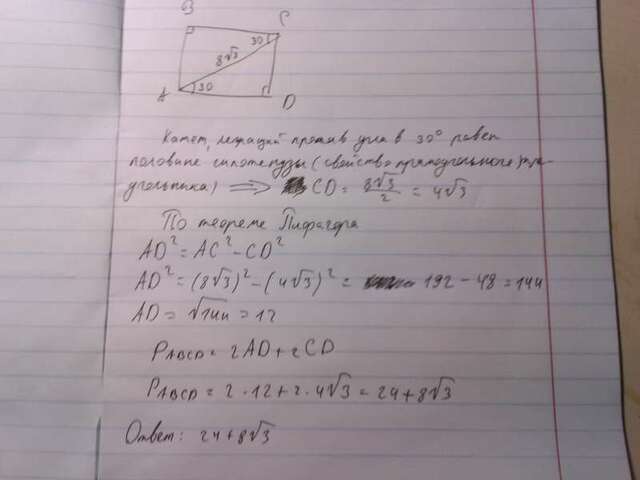 B C
30
8√3
A 30 D
Катет, лежащий против угла в 30° равен
половине гипотенузы (свойство прямоугольного тре-
угольника) ⇒ CD = 8√3/2 = 4√3
По теореме Пифагора
AD² = AC² - CD²
AD² = (8√3)² - (4√3)² = 192 - 48 = 144
AD = √144 = 12
PABCD = 2AD + 2CD
PABCD = 2 · 12 + 2 · 4√3 = 24 + 8√3
Ответ: 24 + 8√3